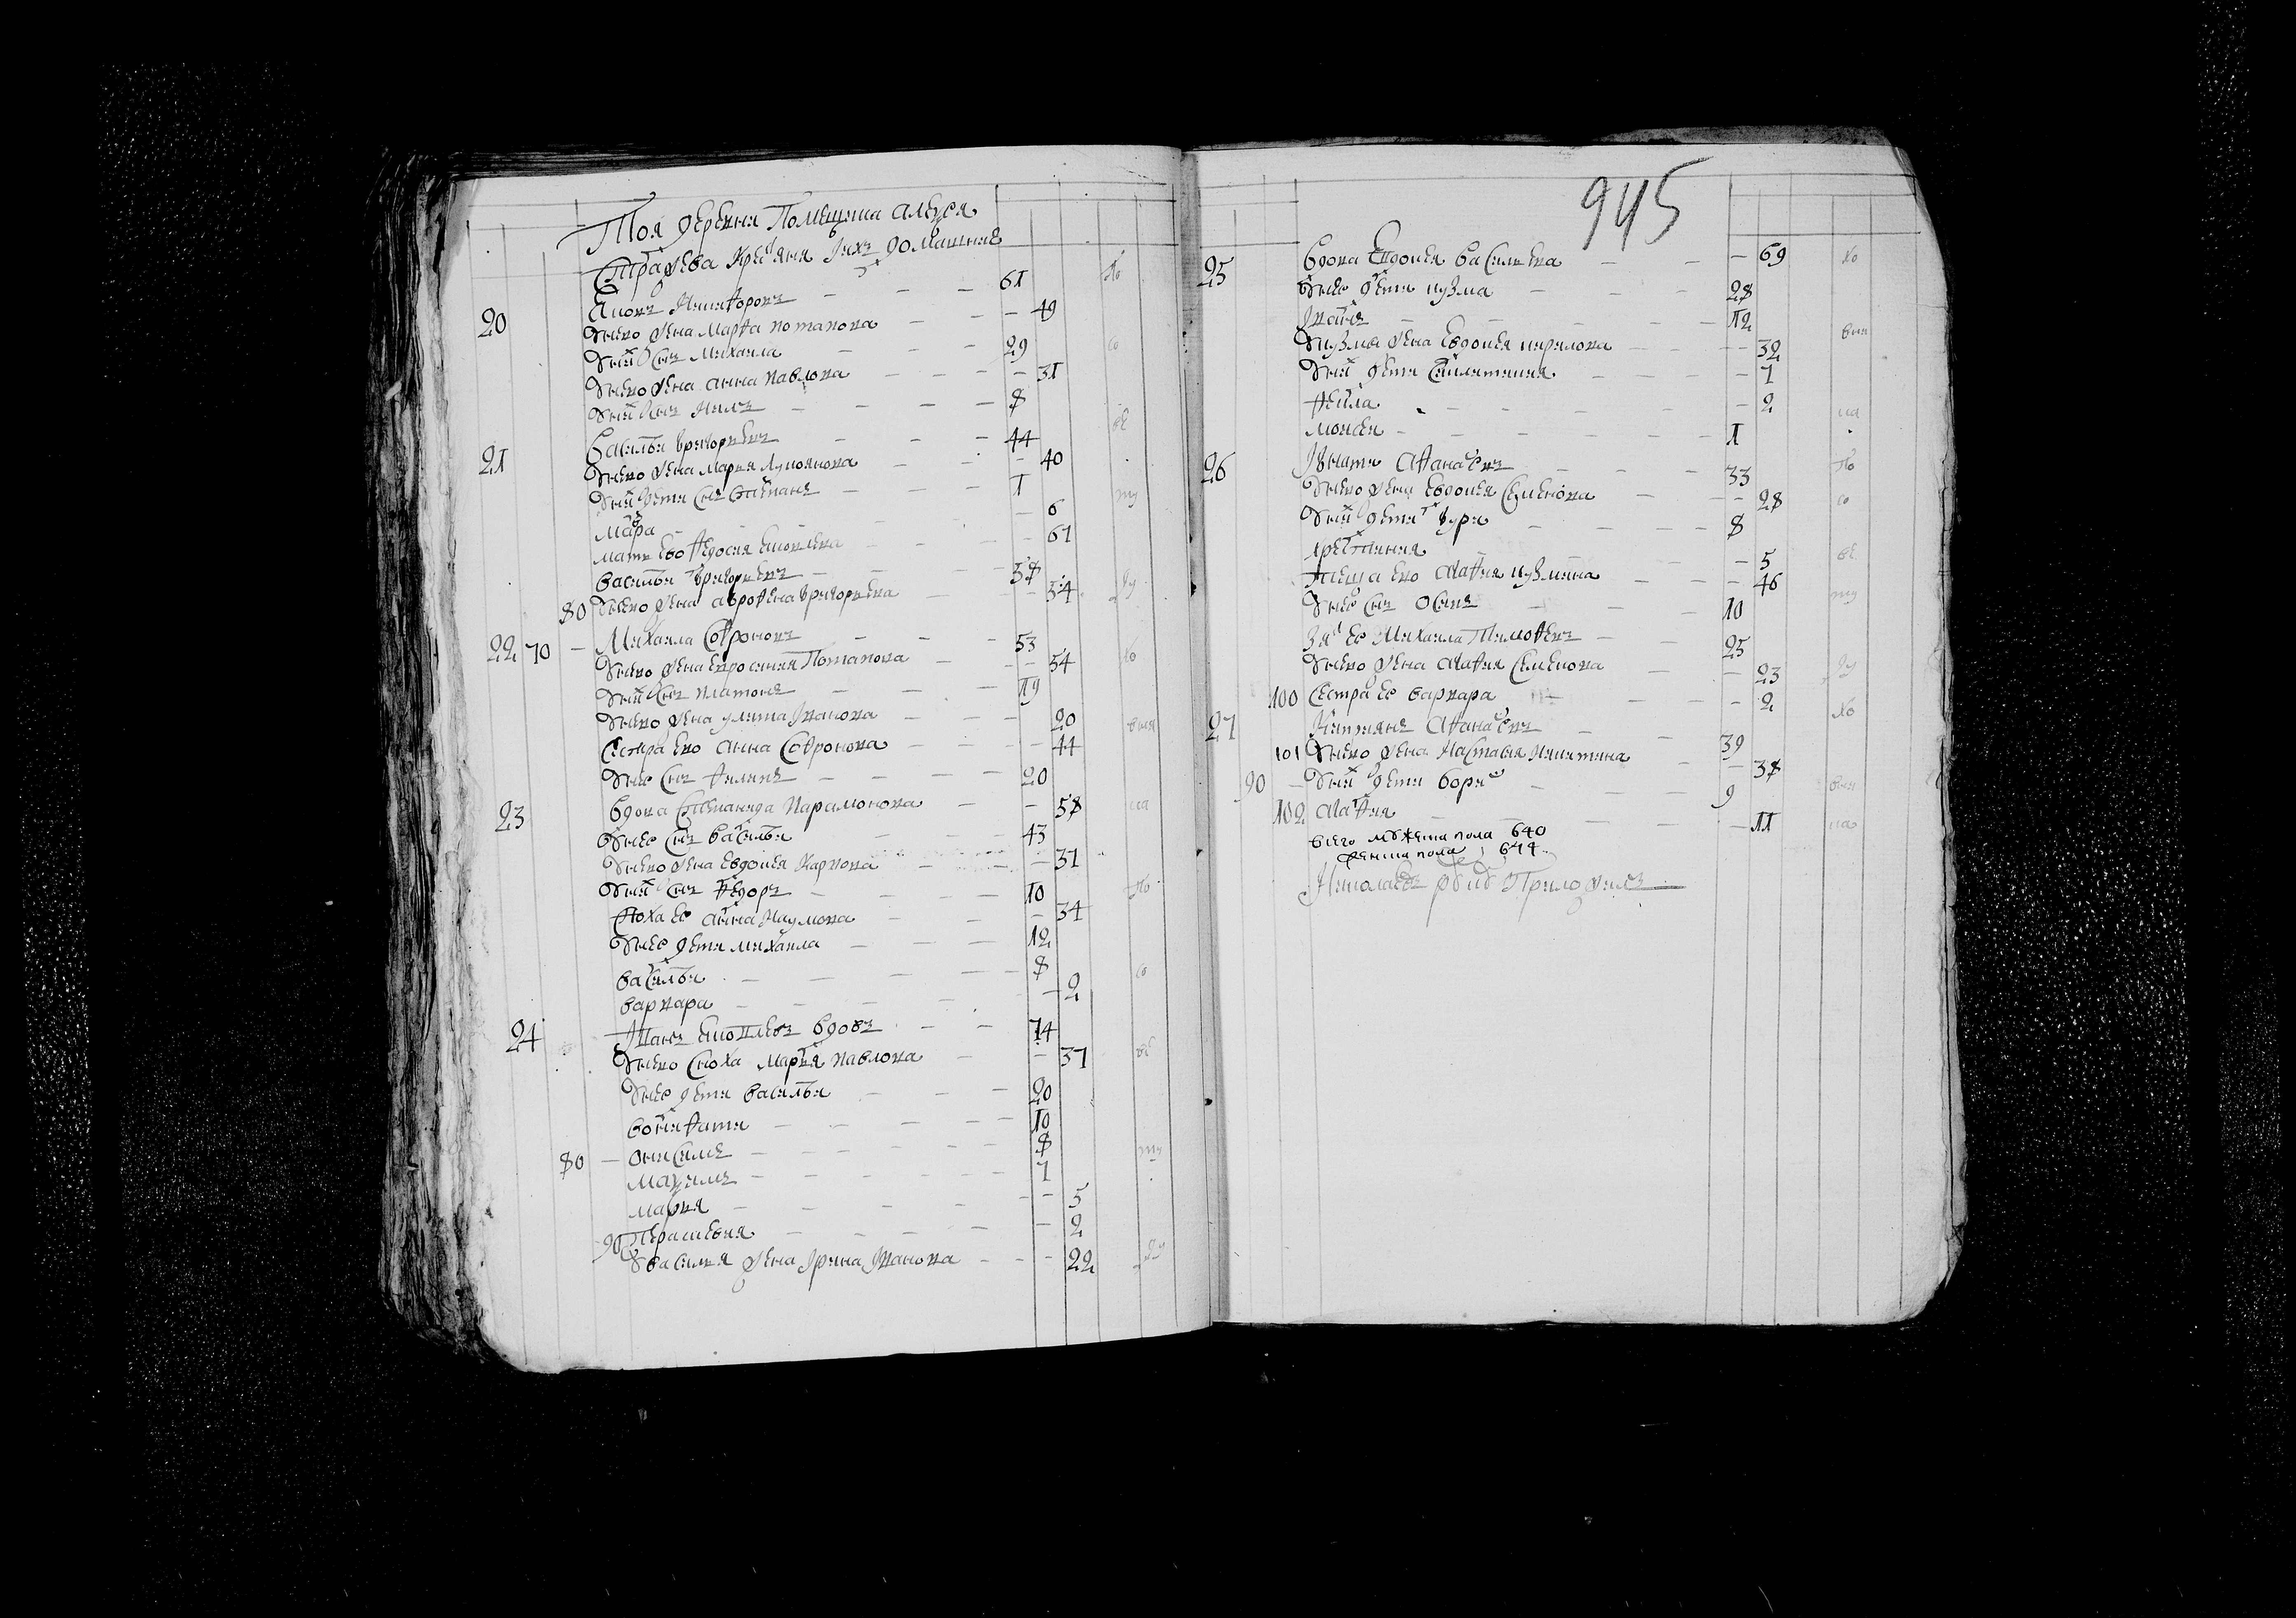 Тоя деревни помещика алеѯея
крестьяне ихъ домашние
20 Никифоровъ — — — 61
У него жена Марфа потапова — — 49
У них сынъ Михаила — — — 29
У него жена анна павлова — — — 31
У них сынъ — — — — 8
21 Василей григорьевъ — — — 44
У него жена Марья лукоянова — — — 40
У них дети сынъ степанъ — — — 1
Марфа — — — 6
мать ево федосья — — — 67
василей григорьевъ — — — 58
80 У него жена афросенья григорьева — — 54
22 70 — Михаила Софроновъ — — — 53
У него жена ефросинья Потапова — — 54
У них сынъ платонъ — — — 19
У него жена улита Иванова — — — 20 вня
Сестра ево анна Софронова — — — 44
У нее сынъ филипъ — — — 20
23 вдова степанида парамонова — — 58 на
У нее сынъ василей — — 43
У него жена евдокея карпова — — — 37
У них сынъ федоръ — — — 10 по
сноха ее анна наумова — — — 34
У нее дети михаила — — — 12
василей — — — — 8 со
варвара — — — — 2
24 Иванъ вдовъ — — 74
У него сноха марья павлова — — 37 ве
У нее дети василей — — — 20
вонифати — — — — 10
80 — онисимъ — — — — 8 ту
маѯимъ — — — — 7
марья — — — — 5
90 Парасковья — — — 2
У василья жена Ирина Иванова — — — 22 ду
945
25 вдова Евдокея васильева — — — 69 хо
У нее дети кузма — — — 28
Иванъ — — — — 12
У кузмы жена евдокея кирилова — — — 32 вня
У них дети — — — — 7
фекла — — — — 2
мосеи — — — — 1 на
26 Игнати афанасьевъ — — — 33 по
У него жена евдокея семенова — — — 28 со
У них дети гури — — — 8
крестинья — — — 5 ве
теща ево агафья кузмина — — — 46
У нее сынъ осипъ — — — 10 ту
зять ее Михаила Тимофеевъ — — 25
У него жена агафья семенова — — — 23 ду
100 Сестра ее варвара — — — 2
27 афанасьевъ — — — 39 хо
101 У него жена настасья никитина — — 38
90 — У них дети борисъ — — — 9 вня
102 агафья — — — — 11 на
всего мужеска пола 640
женска пола 644
руку Приложилъ